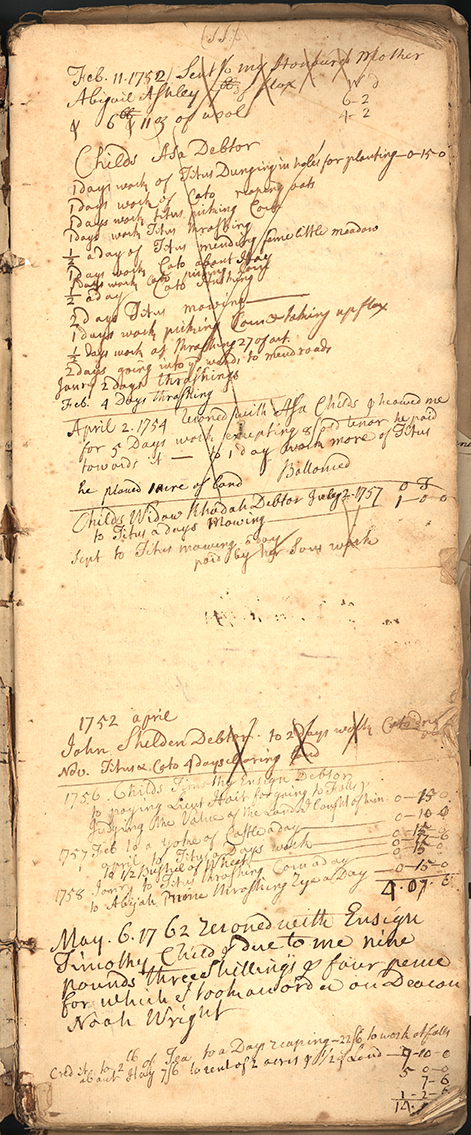 Feb. 11. 1752 Sent to my Honoured Mother
Abigail Ashley flax
6-2
& 6 11 oz of wool 4-2
Childs Asa Debtor
1 days work of Titus Dunging in holes for planting - 0-15-0
1 days work of Cato reaping oats
1 days work Titus picking Corn
1 days work Titus thrashing
½ a day of Titus mending fame little meadow
1 days work Cato about Hay
1 days work Cato picking Corn
½ a day Cato thrashing
2 days Titus mowing
1 days work picking Corn & taking up flax
½ days work at thrashing 27 of oct.
2 days going into woods to mend roads
Janry 2 days thrashing
Feb. 4 Days thrashing
April 2. 1754 reconed with Asa Childs & he owed me
for 5 Days work excepting old tenor he paid
towards it - to 1 day work more of Titus
Ballanced
he plowed 1 acre of land
Childs Widow Rhodah Debtor July 2. 1757
to Titus a days Mowing 1-0-0
Sept to Titus mowing a day
paid by her Sons work
1752 april
John Shelden Debtor. to 2 days work Cato
Nov. Titus & Cato 4 days
1756. Childs Timothy Ensign Debtor
to paying Lieut Hoit for going to
Judging the Value of the Land I bought of him. 0-15-0
1757 Feb to a yoke of Cattle a day 0-10-0
april to Titus 2 Days work
to 1/2 Bushel of Wheat
1758 Janry to Titus thrashing Corn a day
to Abijah Prince thrashing Rye a Day 0-15-0
4-07-6
May. 6. 1762 reconed with Ensign
Timothy Childs & Due to me nine
pounds three shillings & four pence
for which I took an order on Deacon
Noah Wright
Credit to 2 lb of Tea to a Days reaping - 22/6 to work at falls 7-10-0
about Hay 7/6 to rent of 2 acres & 1/2 of Land 5-0-0
7-6
1-2-6
14